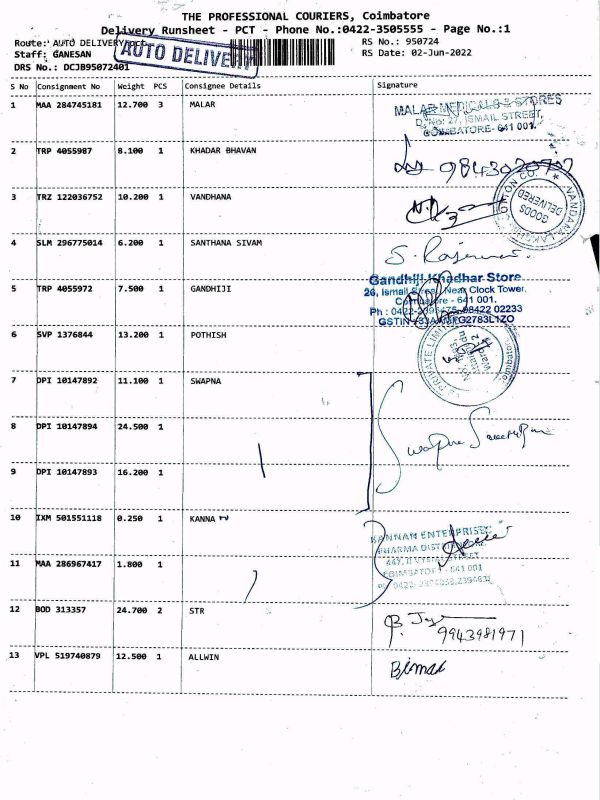 THE PROFESSIONAL COURIERS, Coimbatore
Delivery Runsheet - PCT - Phone No.:0422-3505555 - Page No.:1
Route: AUTO DELIVERY pct
RS No.: 950724
AUTO DELIVERY
Staff: GANESAN
RS Date: 02-Jun-2022
DRS No.: DCJB95072401
S No Consignment No Weight PCS Consignee Details Signature
1 MAA 284745181 12.700 3 MALAR
MALAR MEDICALS & STORES
D. No: 27, ISMAIL STREET,
COIMBATORE- 641 001.
2 TRP 4055987 8.100 1 KHADAR BHAVAN
3 TRZ 122036752 10.200 1 VANDHANA
GOODS
DELIVERED
4 SLM 296775014 6.200 1 SANTHANA SIVAM
5 TRP 4055972 7.500 1 GANDHIJI
Gandhiji Khadhar Store
26, Ismail Street, Near Clock Tower,
Coimbatore - 641 001.
6 SVP 1376844 13.200 1 POTHISH
PRIVATE LIMITED
7 DPI 10147892 11.100 1 SWAPNA
8 DPI 10147894 24.500 1
Swapna
9 DPI 10147893 16.200 1
10 IXM 501551118 0.250 1 KANNA N
KANNAN ENTERPRISES
PHARMA
11 MAA 286967417 1.800 1
COIMBATORE - 641 001
12 BOD 313357 24.700 2 STR
9943981971
13 VPL 519740879 12.500 1 ALLWIN
Bimal